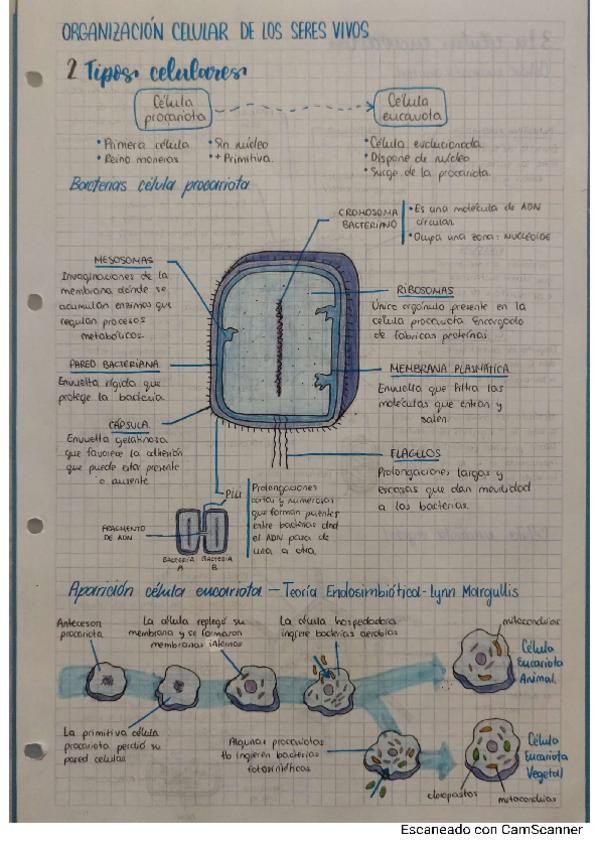 ORGANIZACIÓN CELULAR DE LOS SERES VIVOS
2 Tipos celulares
Célula
procariota
Célula
eucariota
• Primera célula
• Reino moneras
• Sin núcleo
• + Primitiva.
• Célula evolucionada
• Dispone de núcleo
• Surge de la procariota.
Bacterias célula procariota
CROMOSOMA
BACTERIANO
• Es una molécula de ADN
circular
• Ocupa una zona: NUCLEOIDE
MESOSOMAS
Invaginaciones de la
membrana donde se
acumulan enzimas que
regulan procesos
metabólicos.
RIBOSOMAS
Único orgánulo presente en la
célula procariota Encargado
de fabricas proteínas
PARED BACTERIANA
Envuelta rígida que
protege la bacteria.
MEMBRANA PLASMÁTICA
Envuelta que filtra las
moléculas que entran y
salen.
CÁPSULA
Envuelta gelatinosa
que favorece la adhesión
que puede esta presente
o ausente
FLAGELOS
Prolongaciones largas y
escasas que dan movilidad
a las bacterias.
PILI
Prolongaciones
cortas y numerosas
que forman puentes
entre bacterias dnd
el ADN pasa de
una a otra.
FRAGMENTO
DE ADN
BACTERIA
A
BACTERIA
B
Aparición célula eucariota — Teoría Endosimbiótica - Lynn Margullis
Antecesor
procariota
La célula replegó su
membrana y se formaron
membranas internas
La célula hospedadora
ingiere bacterias aerobias
mitocondrias
Célula
Eucariota
Animal.
La primitiva célula
procariota perdió su
pared celular
Algunas procariotas
tb ingieren bacterias
fotosintéticas
Célula
Eucariota
Vegetal
cloropastos
mitocondrias
Escaneado con CamScanner